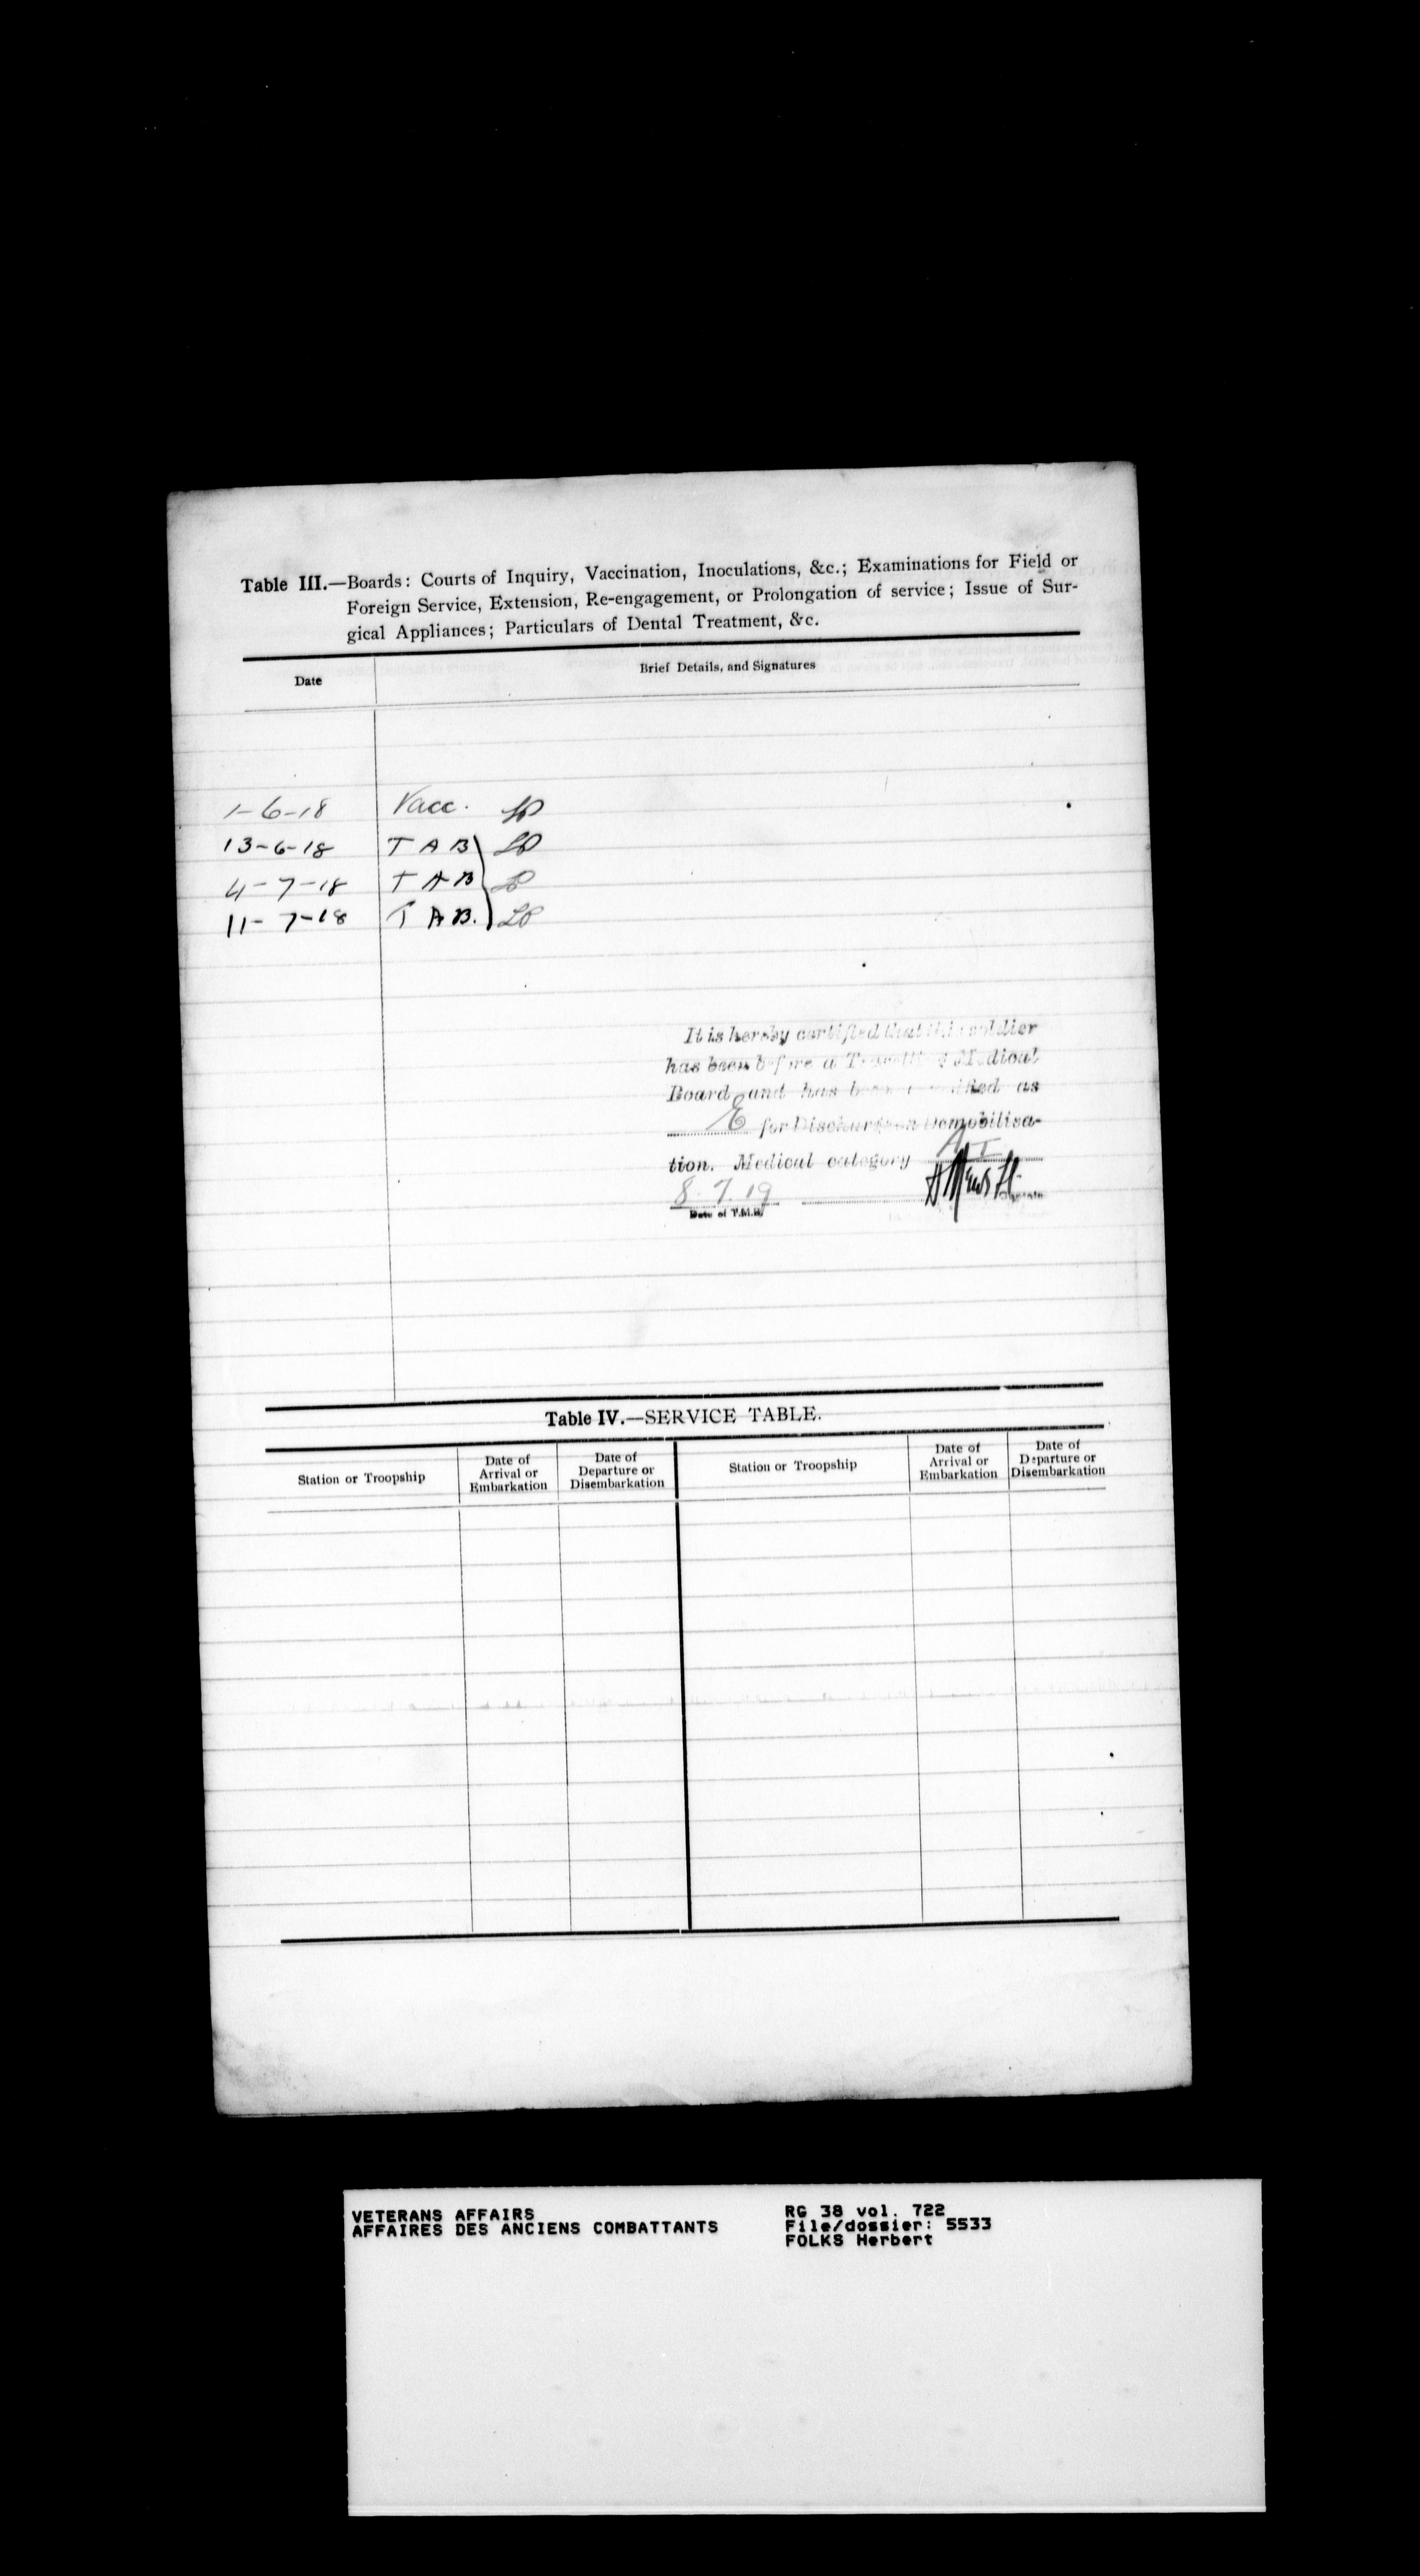 Table III.—Boards: Courts of Inquiry, Vaccination, Inoculations, &c.; Examinations for Field or
Foreign Service, Extension, Re-engagement, or Prolongation of service; Issue of Sur-
gical Appliances; Particulars of Dental Treatment, &c.
Date
Brief Details, and Signatures
1-6-18 Vacc.
13-6-18 T A B
4-7-18 T A B
11-7-18 T A B.
It is hereby certified that this soldier
has been before a Travelling Medical
Board and has been as
E for Discharge on Demobilisa-
tion. Medical category A I
8.7.19
Date of T.M.B.
Table IV.—SERVICE TABLE.
Station or Troopship
Date of
Arrival or
Embarkation
Date of
Departure or
Disembarkation
Station or Troopship
Date of
Arrival or
Embarkation
Date of
Departure or
Disembarkation
VETERANS AFFAIRS
AFFAIRES DES ANCIENS COMBATTANTS
RG 38 vol. 722
File/dossier: 5533
FOLKS Herbert